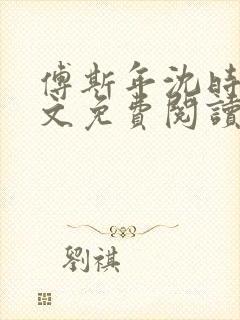 傅斯年沈時
文免費閱讀
劉祺